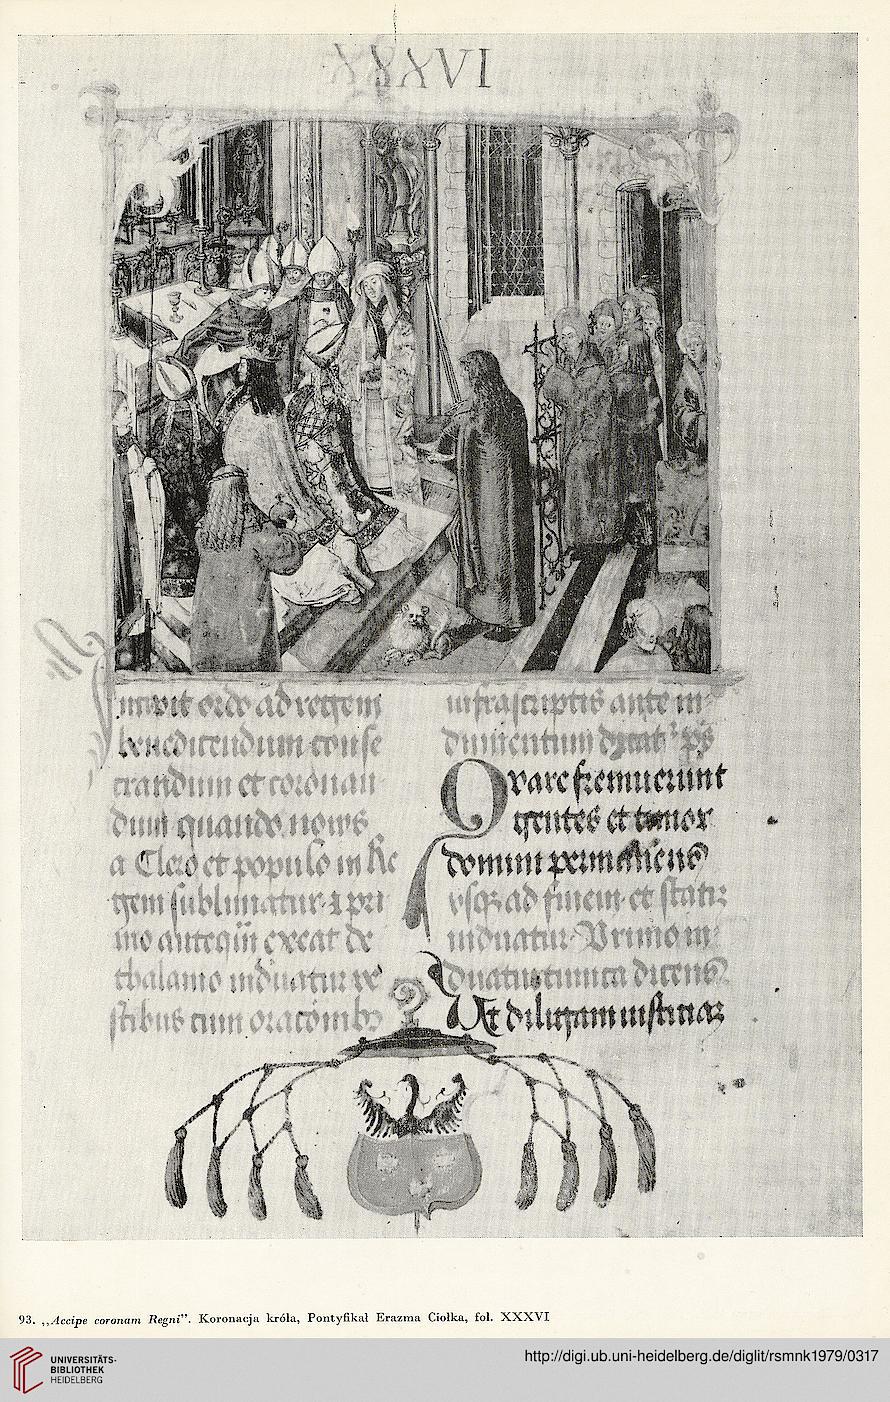 XXXVI
Incipit ordo ad regem
benedicendum conse
crandum et coronan
dum quando novus
a Clero et populo in Re
gem sublimatur et pri
mo antequam exeat de
thalamo induatur ve
stibus cum oracōnibus
infrascriptis ante in
dumentum
Quare fremuerunt
gentes et
domini
usq ad finem et statim
induatur Primo in
duatur tunica dicens
Ut diligam iusticiaz
93. ,,Accipe coronam Regni”. Koronacja króla, Pontyfikał Erazma Ciołka, fol. XXXVI
UNIVERSITÄTS-
BIBLIOTHEK
HEIDELBERG
http://digi.ub.uni-heidelberg.de/diglit/rsmnk1979/0317